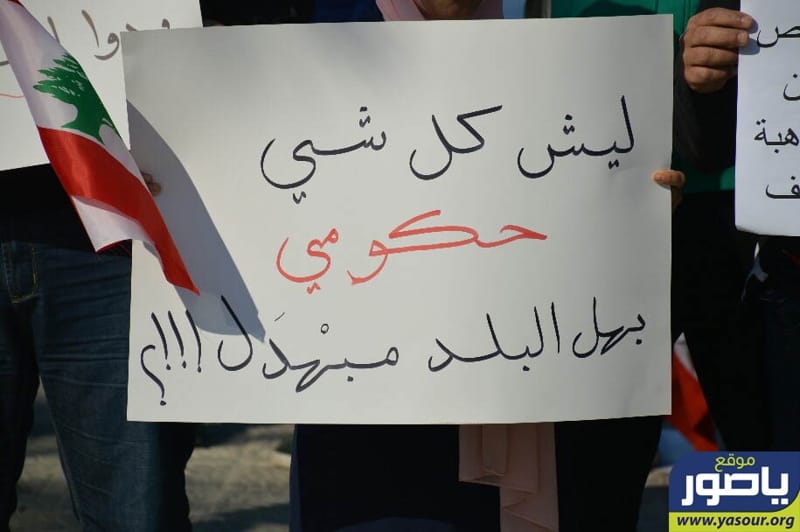 ليش كل شي
حكومي
بهل البلد مبهْدَل !!!؟
موقع
ياصور
www.yasour.org